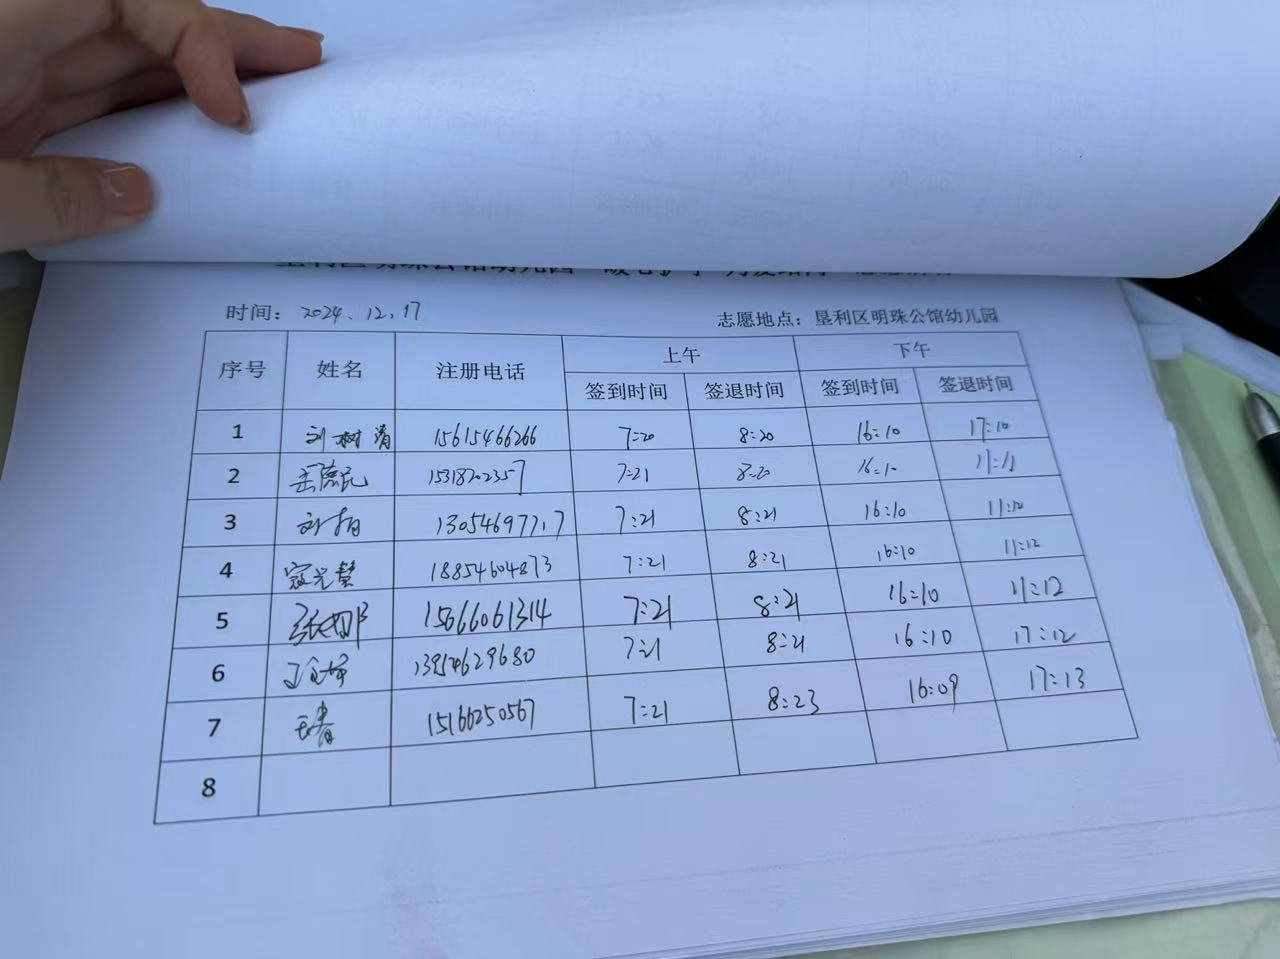 时间: 2024、12、17
志愿地点: 垦利区明珠公馆幼儿园
序号 姓名 注册电话 上午 下午
签到时间 签退时间 签到时间 签退时间
1 刘树清 15615466266 7:20 8:20 16:10 17:10
2 7:21 8:20 16:10
3 7:21 8:21 16:10 17:12
4 寇光慧 18854604873 7:21 8:21 16:10 17:12
5 张娜 15666061314 7:21 8:21 16:10 17:12
6 13954629680 7:21 8:21 16:10 17:12
7 15166250567 7:21 8:23 16:09 17:13
8